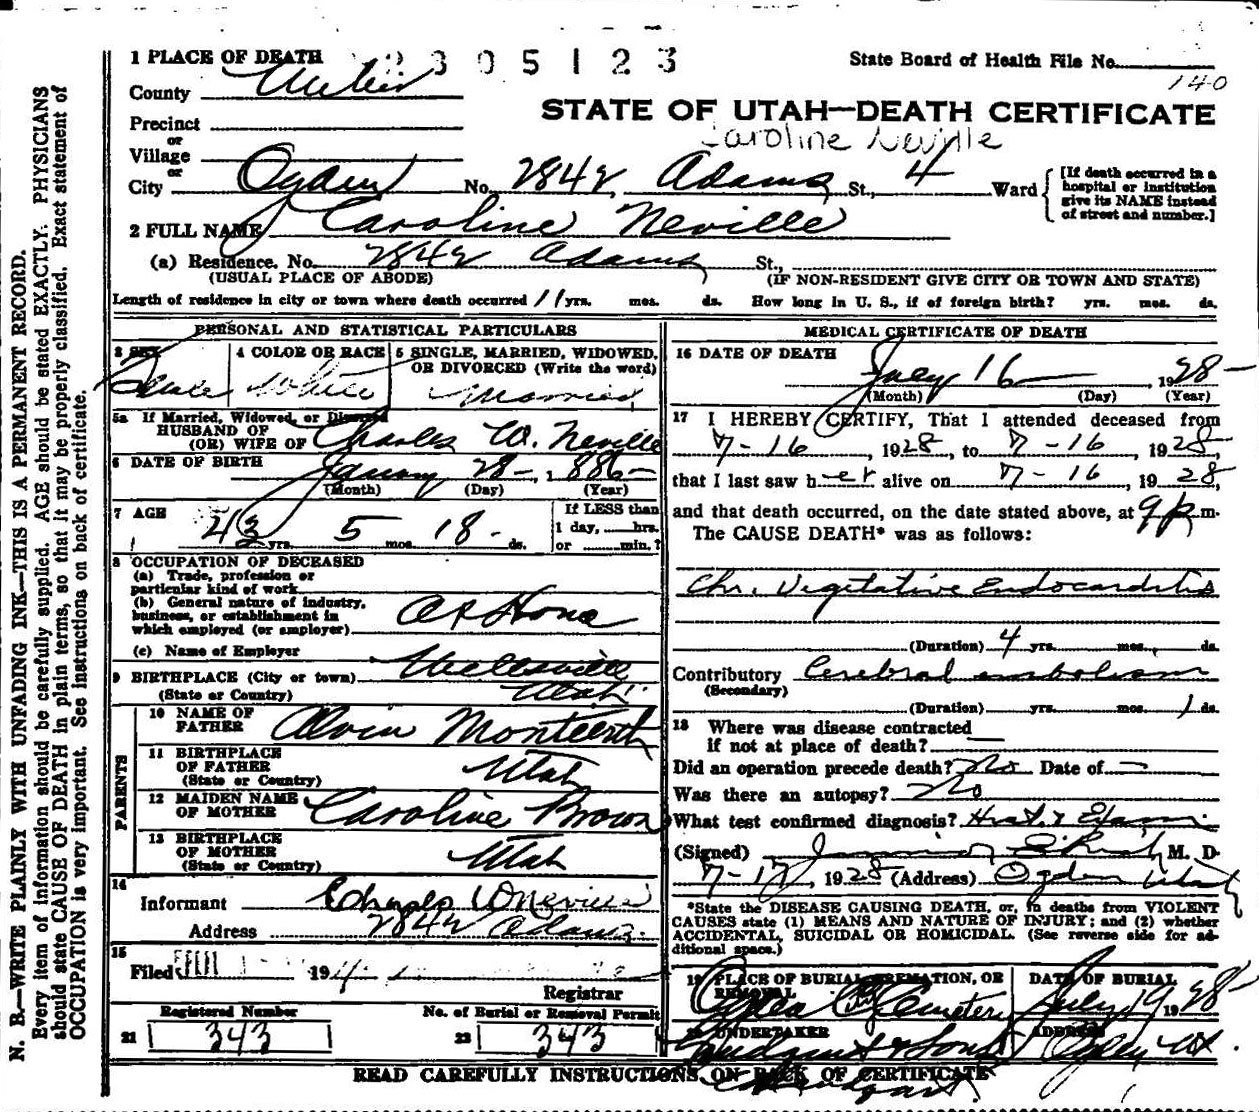 1 PLACE OF DEATH 2805123
State Board of Health File No.
140
County Weber
STATE OF UTAH—DEATH CERTIFICATE
Precinct
Caroline Neville
or
Village
or
City Ogden No. 2842 Adams St., 4 Ward
[If death occurred in a hospital or institution give its NAME instead of street and number.]
2 FULL NAME Caroline Neville
(a) Residence. No. 2842 Adams St.,
(USUAL PLACE OF ABODE) (IF NON-RESIDENT GIVE CITY OR TOWN AND STATE)
Length of residence in city or town where death occurred 11 yrs. mos. ds. How long in U. S., if of foreign birth? yrs. mos. ds.
PERSONAL AND STATISTICAL PARTICULARS
3 SEX 4 COLOR OR RACE White
5 SINGLE, MARRIED, WIDOWED,
OR DIVORCED (Write the word)
Married
5a If Married, Widowed, or Divorced
HUSBAND OF
(OR) WIFE OF Charles W. Neville
6 DATE OF BIRTH January 28-, 1886-
(Month) (Day) (Year)
7 AGE 43 yrs. 5 mos. 18- ds.
If LESS than
1 day, hrs.
or min.?
8 OCCUPATION OF DECEASED
(a) Trade, profession or
particular kind of work
(b) General nature of industry,
business, or establishment in
which employed (or employer) At Home
(c) Name of Employer
9 BIRTHPLACE (City or town) Wellsville
(State or Country) Utah
PARENTS
10 NAME OF
FATHER Alvin Monteith
11 BIRTHPLACE
OF FATHER Utah
(State or Country)
12 MAIDEN NAME
OF MOTHER Caroline Brown
13 BIRTHPLACE
OF MOTHER Utah
(State or Country)
14
Informant Charles W Neville
Address 2842 Adams
15
Filed 19
Registrar
Registered Number No. of Burial or Removal Permit
21 343 22 343
MEDICAL CERTIFICATE OF DEATH
16 DATE OF DEATH
July 16 1928-
(Month) (Day) (Year)
17 I HEREBY CERTIFY, That I attended deceased from
7-16, 1928, to 7-16, 1928,
that I last saw her alive on 7-16, 1928,
and that death occurred, on the date stated above, at 9 p m.
The CAUSE DEATH* was as follows:
Chr. Vegitative Endocarditis
(Duration) 4 yrs. mos. ds.
Contributory Cerebral embolism
(Secondary)
(Duration) yrs. mos. 1 ds.
18 Where was disease contracted
if not at place of death? —
Did an operation precede death? No Date of —
Was there an autopsy? No
What test confirmed diagnosis? Hist. & Exam
(Signed) M. D.
7-17, 1928 (Address) Ogden Utah
*State the DISEASE CAUSING DEATH, or, in deaths from VIOLENT
CAUSES state (1) MEANS AND NATURE OF INJURY; and (2) whether
ACCIDENTAL, SUICIDAL OR HOMICIDAL. (See reverse side for ad-
ditional space.)
19 PLACE OF BURIAL, CREMATION, OR
REMOVAL
Ogden City Cemetery
DATE OF BURIAL
July 19 1928-
20 UNDERTAKER
& Sons
ADDRESS
Ogden Ut.
READ CAREFULLY INSTRUCTIONS ON BACK OF CERTIFICATE
N. B.—WRITE PLAINLY WITH UNFADING INK—THIS IS A PERMANENT RECORD.
Every item of information should be carefully supplied. AGE should be stated EXACTLY. PHYSICIANS
should state CAUSE OF DEATH in plain terms, so that it may be properly classified. Exact statement of
OCCUPATION is very important. See instructions on back of certificate.